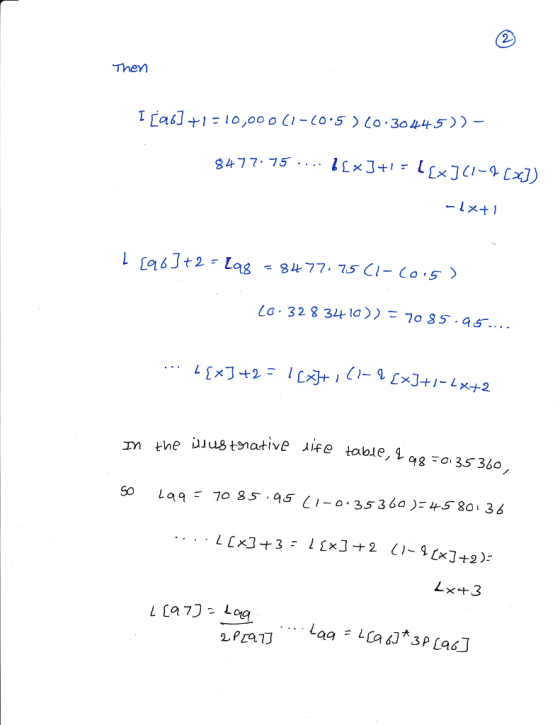 2
Then
I [96] +1 = 10,000 (1-(0.5) (0.30445)) -
8477.75 .... l[x]+1 = l[x](1-q[x])
-lx+1
L [96]+2 = L98 = 8477.75 (1-(0.5)
(0.3283410)) = 7085.95....
... L[x]+2 = l[x]+1 (1-q[x]+1-Lx+2
In the illustorative life table, q98 = 0.35360,
so L99 = 7085.95 (1-0.35360)=4580.36
.... L[x]+3 = l[x]+2 (1-q[x]+2)=
Lx+3
L [97] = L99 / 2P[97] .... L99 = L[96]* 3P[96]